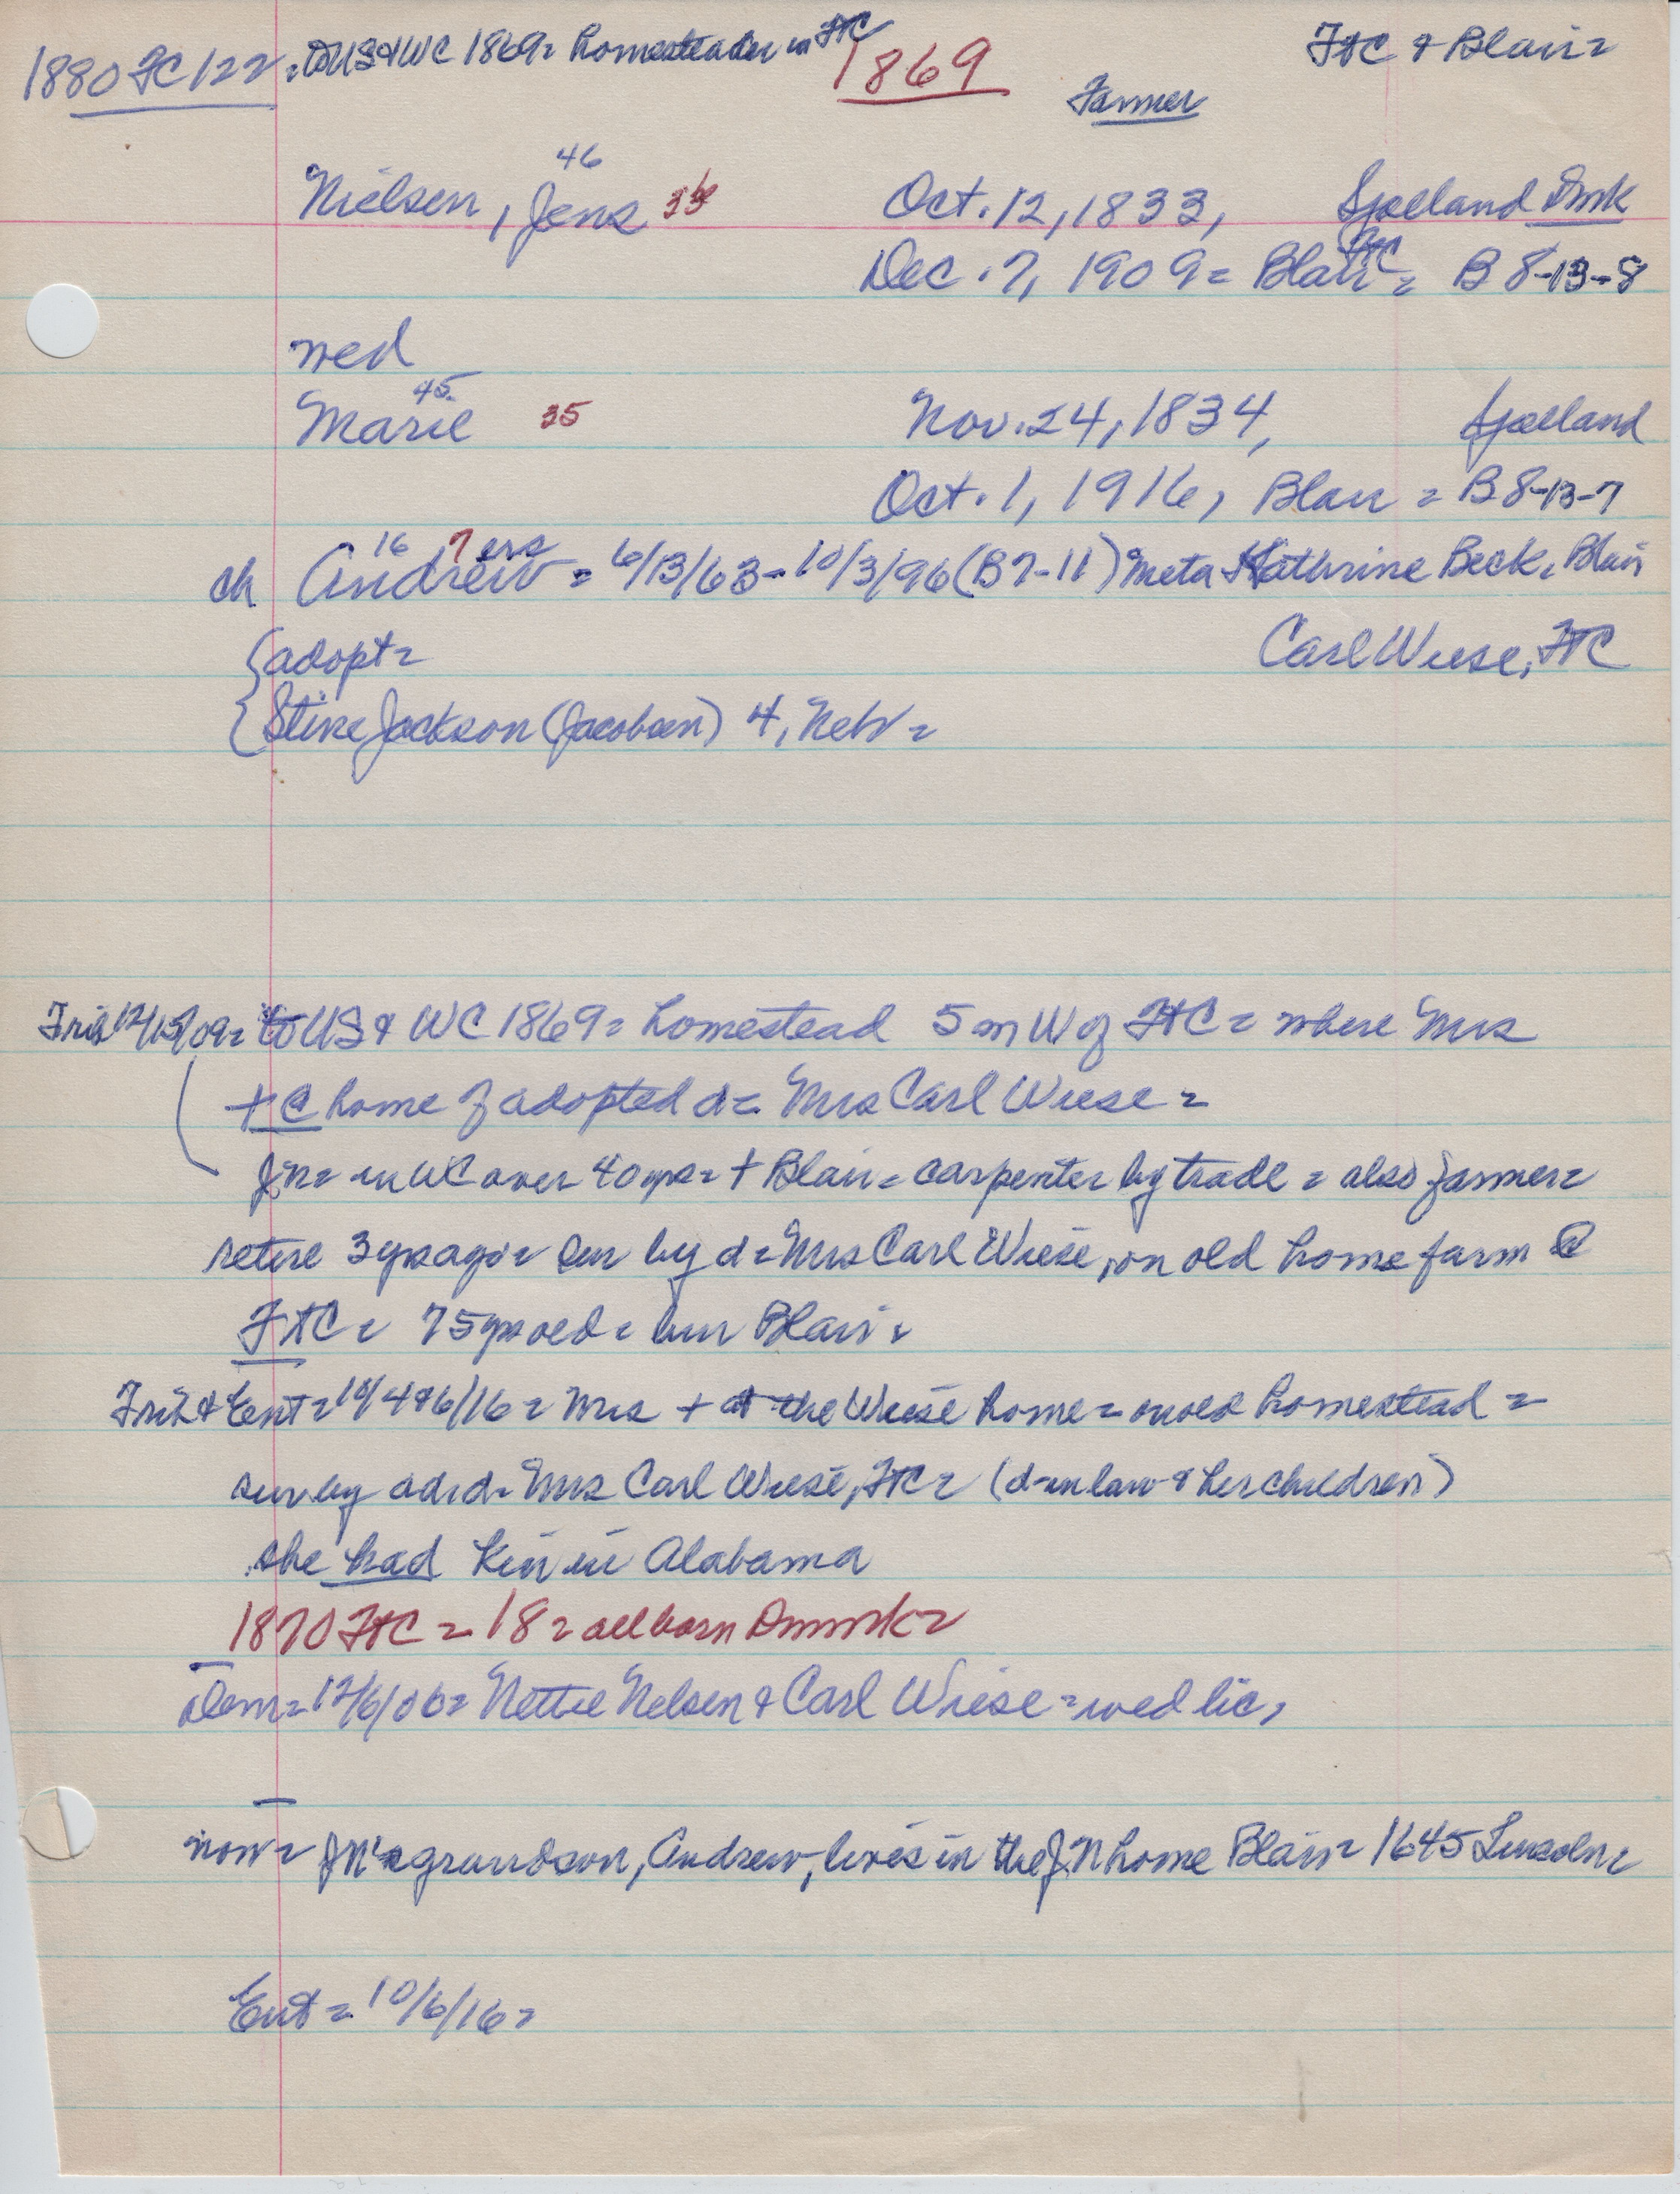 1880 FC 122 = to US & WC 1869 = homesteader in FtC 1869 FtC & Blair =
Farmer
46
Nielsen, Jens 36 Oct. 12, 1833, Sjælland Dmk
Dec. 7, 1909 = Blair = B 8-13-8
wed
45
Marie 35 Nov. 24, 1834, Sjælland
Oct. 1, 1916, Blair = B 8-13-7
16 7 yrs
ch Andrew = 6/13/63 - 10/3/96 (B7-11) Meta Kathrine Beck, Blair
{adopt = Carl Wiese, FtC
{Stine Jackson (Jacobsen) 4, Neb =
12/15/09 = to US & WC 1869 = homestead 5 m W of FtC = where Mrs
+ @ home of adopted d = Mrs Carl Wiese =
JN = in WC over 40 yrs = + Blair = carpenter by trade = also farmer =
retire 3 yrs ago = sur by d = Mrs Carl Wiese, on old home farm @
FtC = 75 yrs old = bur Blair =
& Ent = 10/4 & 6/16 = Mrs + at the Wiese home = on old homestead =
sur by ad d = Mrs Carl Wiese, FtC = (d-in law & her children)
she had kin in Alabama
1870 FtC = 18 = all born Dnmrk =
Dem = 12/6/06 = Nettie Nelsen & Carl Wiese = wed lic,
now = JN's grandson, Andrew, lives in the JN home Blair = 1645 Lincoln =
Ent = 10/6/16 =